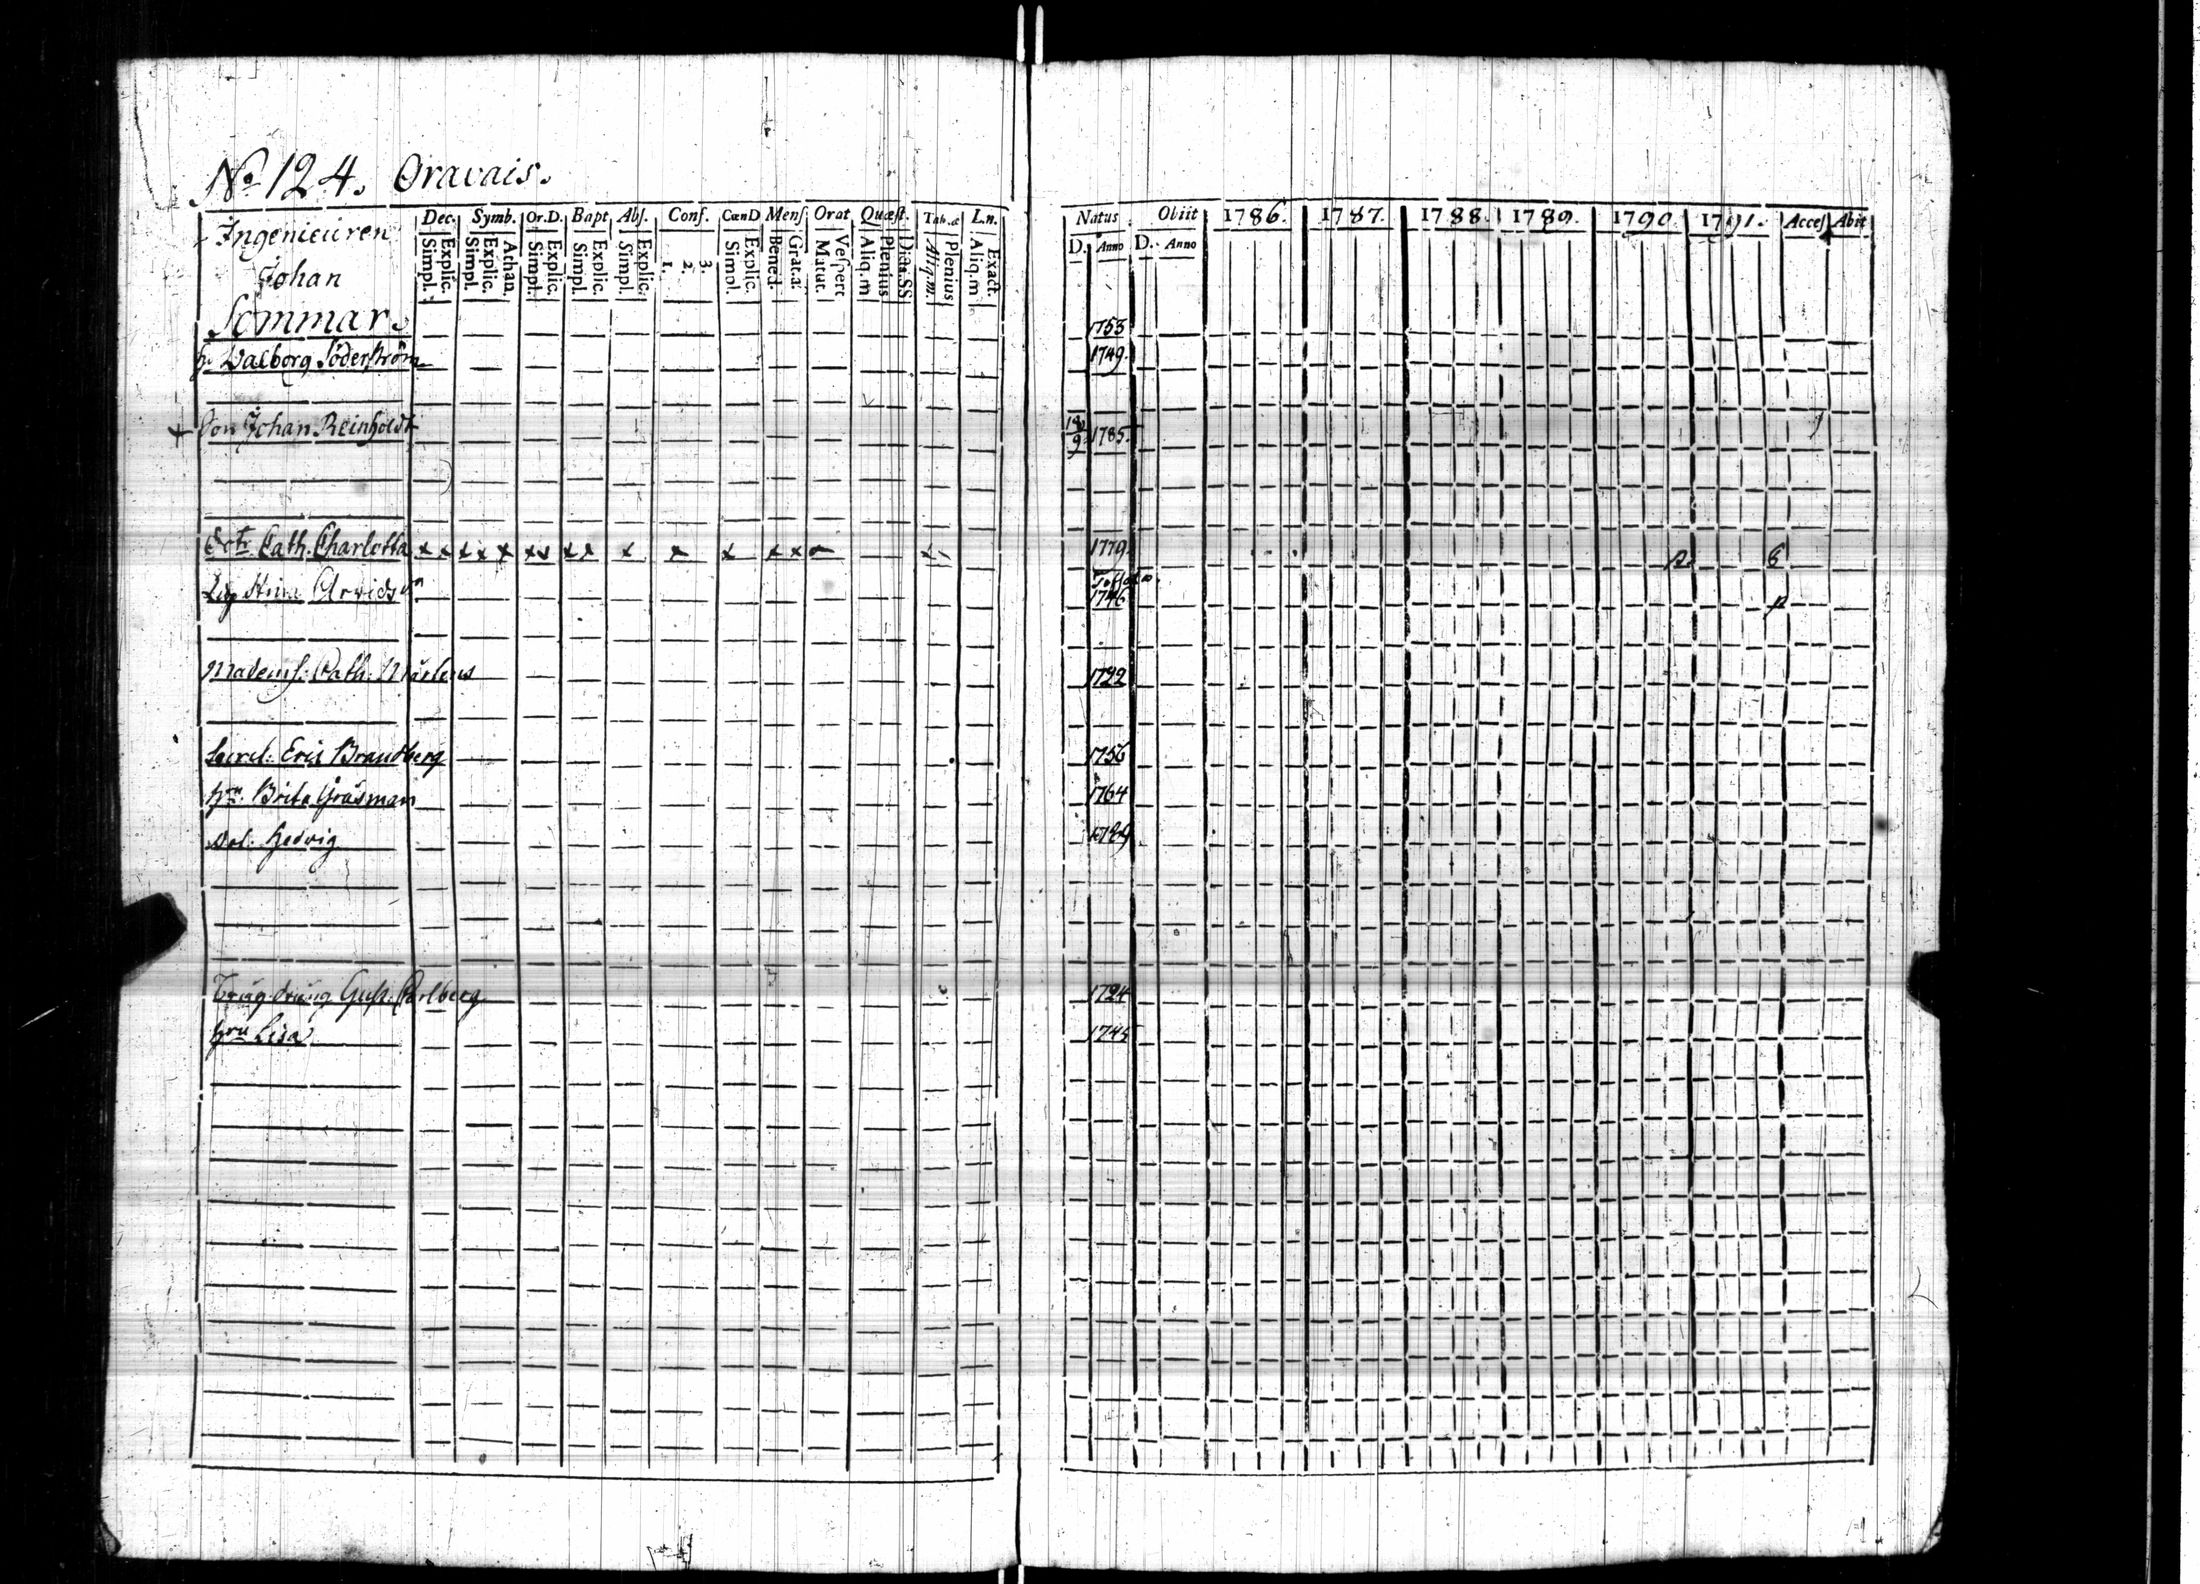 No 124. Oravais.
Dec. Symb. Or.D. Bapt Abs. Conf. CœnD Mens Orat Quæst. Tab.æ L.n.
Simpl. Explic. Simpl. Explic. Athan. Simpl. Explic. Simpl. Explic. Simpl. Explic. 1. 2. 3. Simpl. Explic. Bened. Grat.a. Matut. Vespert Aliq.m Plenius Dicta SS Aliq.m. Plenius Aliq.m Exact.
Natus Obiit 1786. 1787. 1788. 1789. 1790. 1791. Acces Abit
D. Anno D. Anno
Ingenieuren
Johan
Sommar. 1753
h. Valborg Söderström 1749.
+ Son Johan Reinholdt 9 1785.
Cath. Charlotta x x x x x x x x x x x x x x 1779.
Stina 1746
Cath. 1722
Secret: Eric Brandberg 1756
hu. Brita Gräsman 1764
Hedvig 1789
Gust. Carlberg 1724
hru Lisa 1745